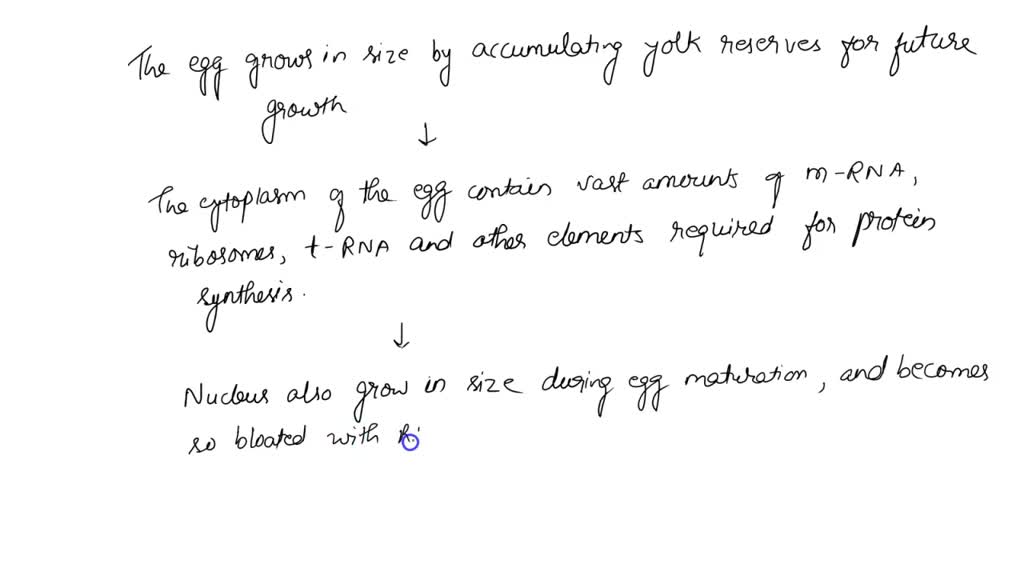 The egg grows in size by accumulating yolk reserves for future
growth
↓
The cytoplasm of the egg contain vast amounts of m-RNA,
ribosomes, t-RNA and other elements required for protein
synthesis.
↓
Nucleus also grow in size during egg maturation, and becomes
so bloated with